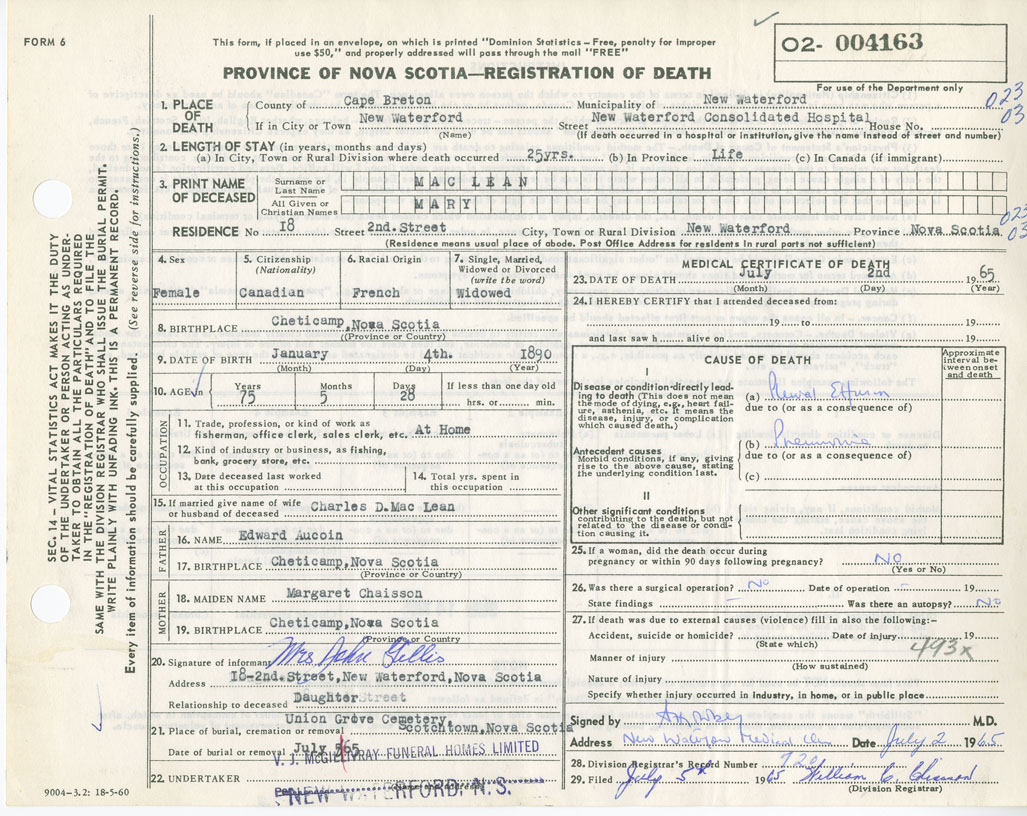 FORM 6
This form, if placed in an envelope, on which is printed "Dominion Statistics – Free, penalty for improper
use $50," and properly addressed will pass through the mail "FREE"
O2- 004163
PROVINCE OF NOVA SCOTIA—REGISTRATION OF DEATH
For use of the Department only
1. PLACE OF DEATH
County of Cape Breton Municipality of New Waterford
023
03
If in City or Town New Waterford Street New Waterford Consolidated Hospital House No.
(Name) (If death occurred in a hospital or institution, give the name instead of street and number)
2. LENGTH OF STAY (in years, months and days)
(a) In City, Town or Rural Division where death occurred 25yrs. (b) In Province Life (c) In Canada (if immigrant)
3. PRINT NAME OF DECEASED
Surname or Last Name MAC LEAN
All Given or Christian Names MARY
RESIDENCE No 18 Street 2nd.Street City, Town or Rural Division New Waterford Province Nova Scotia
023
03
(Residence means usual place of abode. Post Office Address for residents in rural parts not sufficient)
4. Sex
Female
5. Citizenship
(Nationality)
Canadian
6. Racial Origin
French
7. Single, Married,
Widowed or Divorced
(write the word)
Widowed
8. BIRTHPLACE Cheticamp,Nova Scotia
((Province or Country)
9. DATE OF BIRTH January 4th. 1890
(Month) (Day) (Year)
10. AGE in
Years 75
Months 5
Days 28
If less than one day old
hrs. or min.
OCCUPATION
11. Trade, profession, or kind of work as
fisherman, office clerk, sales clerk, etc. At Home
12. Kind of industry or business, as fishing,
bank, grocery store, etc.
13. Date deceased last worked
at this occupation
14. Total yrs. spent in
this occupation
15. If married give name of wife
or husband of deceased Charles D.Mac Lean
FATHER
16. NAME Edward Aucoin
17. BIRTHPLACE Cheticamp,Nova Scotia
(Province or Country)
MOTHER
18. MAIDEN NAME Margaret Chaisson
19. BIRTHPLACE Cheticamp,Nova Scotia
(Province or Country
20. Signature of informant Mrs John Gillis
Address 18-2nd.Street,New Waterford,Nova Scotia
Relationship to deceased Daughter Street
21. Place of burial, cremation or removal Union Grove Cemetery,
Scotchtown,Nova Scotia
Date of burial or removal July 5/65
V. J. McGILLIVRAY FUNERAL HOMES LIMITED
22. UNDERTAKER
(Name and address)
NEW WATERFORD, N.S.
9004–3.2: 18-5-60
MEDICAL CERTIFICATE OF DEATH
23. DATE OF DEATH July 2nd 1965
(Month) (Day) (Year)
24. I HEREBY CERTIFY that I attended deceased from:
19 to 19
and last saw h alive on 19
CAUSE OF DEATH
Approximate
interval be-
tween onset
and death
I
Disease or condition directly lead-
ing to death (This does not mean
the mode of dying, e.g., heart fail-
ure, asthenia, etc. It means the
disease, injury, or complication
which caused death.)
(a) Pleural Effusion
due to (or as a consequence of)
(b) Pneumonia
due to (or as a consequence of)
(c)
Antecedent causes
Morbid conditions, if any, giving
rise to the above cause, stating
the underlying condition last.
II
Other significant conditions
contributing to the death, but not
related to the disease or condi-
tion causing it.
25. If a woman, did the death occur during
pregnancy or within 90 days following pregnancy? NO
(Yes or No)
26. Was there a surgical operation? No Date of operation –
State findings – Was there an autopsy? No
27. If death was due to external causes (violence) fill in also the following:–
Accident, suicide or homicide? Date of injury 19
(State which)
493x
Manner of injury
(How sustained)
Nature of injury
Specify whether injury occurred in industry, in home, or in public place
Signed by M.D.
Address New Waterford Medical Date July 2 1965
28. Division Registrar's Record Number
29. Filed July 5th 1965 William C. Chisson
(Division Registrar)
SEC. 14 – VITAL STATISTICS ACT MAKES IT THE DUTY
OF THE UNDERTAKER OR PERSON ACTING AS UNDER-
TAKER TO OBTAIN ALL THE PARTICULARS REQUIRED
IN THE "REGISTRATION OF DEATH" AND TO FILE THE
SAME WITH THE DIVISION REGISTRAR WHO SHALL ISSUE THE BURIAL PERMIT.
WRITE PLAINLY WITH UNFADING INK – THIS IS A PERMANENT RECORD.
Every item of information should be carefully supplied. (See reverse side for instructions.)